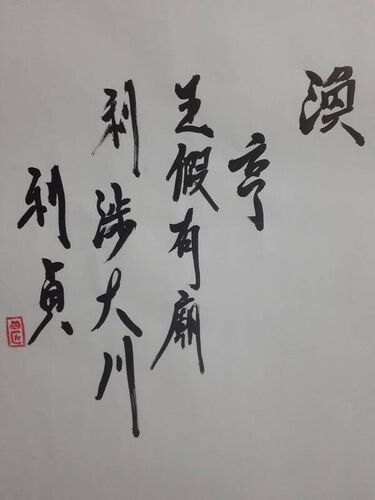 渙
亨
王假有廟
利涉大川
利貞